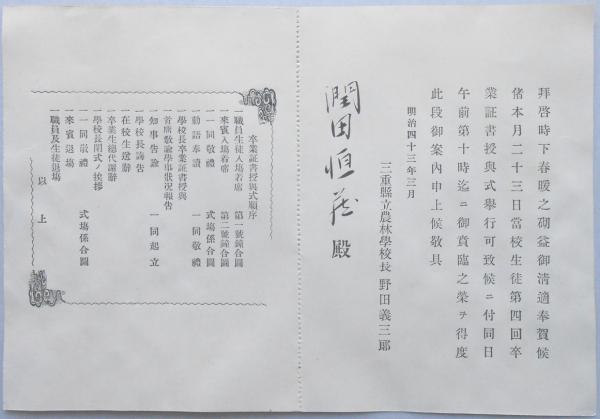 拜啓時下春暖之砌益御清適奉賀候
偖本月二十三日當校生徒第四回卒
業証書授與式擧行可致候ニ付同日
午前第十時迄ニ御賁臨之榮ヲ得度
此段御案内申上候敬具
明治四十三年三月
三重縣立農林學校長 野田義三郎
潤田恒蔵 殿
卒業証書授與式順序
一職員生徒入場着席 第一號鐘合圖
一來賓入場着席 第二號鐘合圖
一一同敬禮 式場係合圖
一勅語奉讀 一同敬禮
一學校長卒業証書授與
首席敎諭學事狀況報告
一知事告諭 一同起立
一學校長誨告
一在校生送辭
一卒業生總代謝辭
一學校長閉式ノ挨拶
一一同敬禮 式場係合圖
一來賓退場
一職員及生徒退場
以上